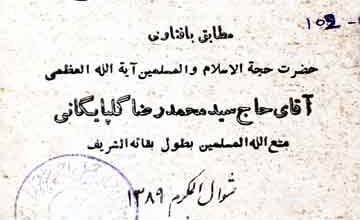 102-
مطابق بافتاوی
حضرت حجة الاسلام والمسلمین آیة الله العظمی
آقای حاج سید محمد رضا گلپایگانی
متع الله المسلمین بطول بقائه الشریف
شوال المکرم ۱۳۸۹